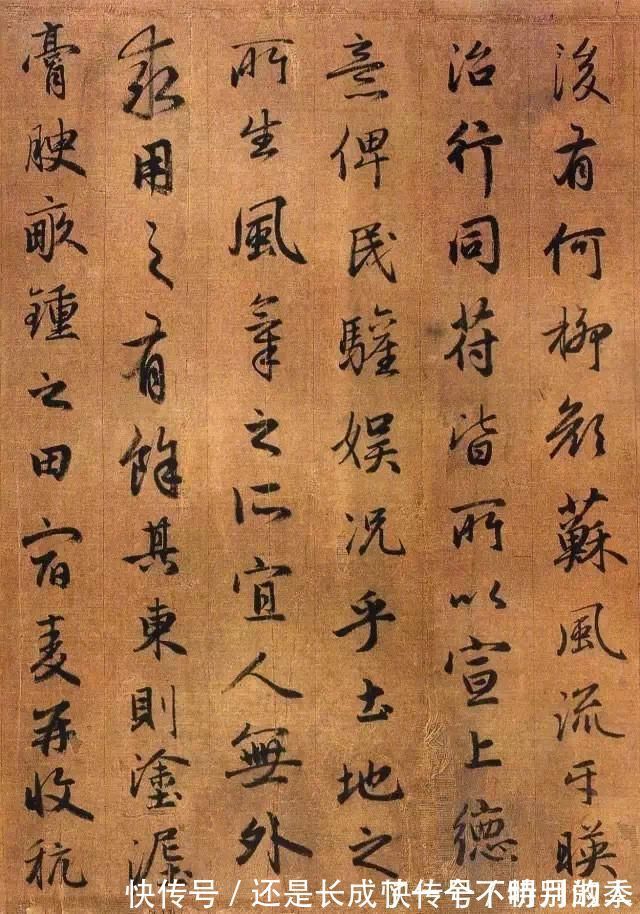 後有何柳顏蘇風流互暎
治行同苻皆所以宣上德
意俾民驩娛況乎土地之
所生風氣之所宜人無外
求用之有餘其東則塗泥
膏腴畝鍾之田宿麥再收秔
快传号 / 还是长成
快传号